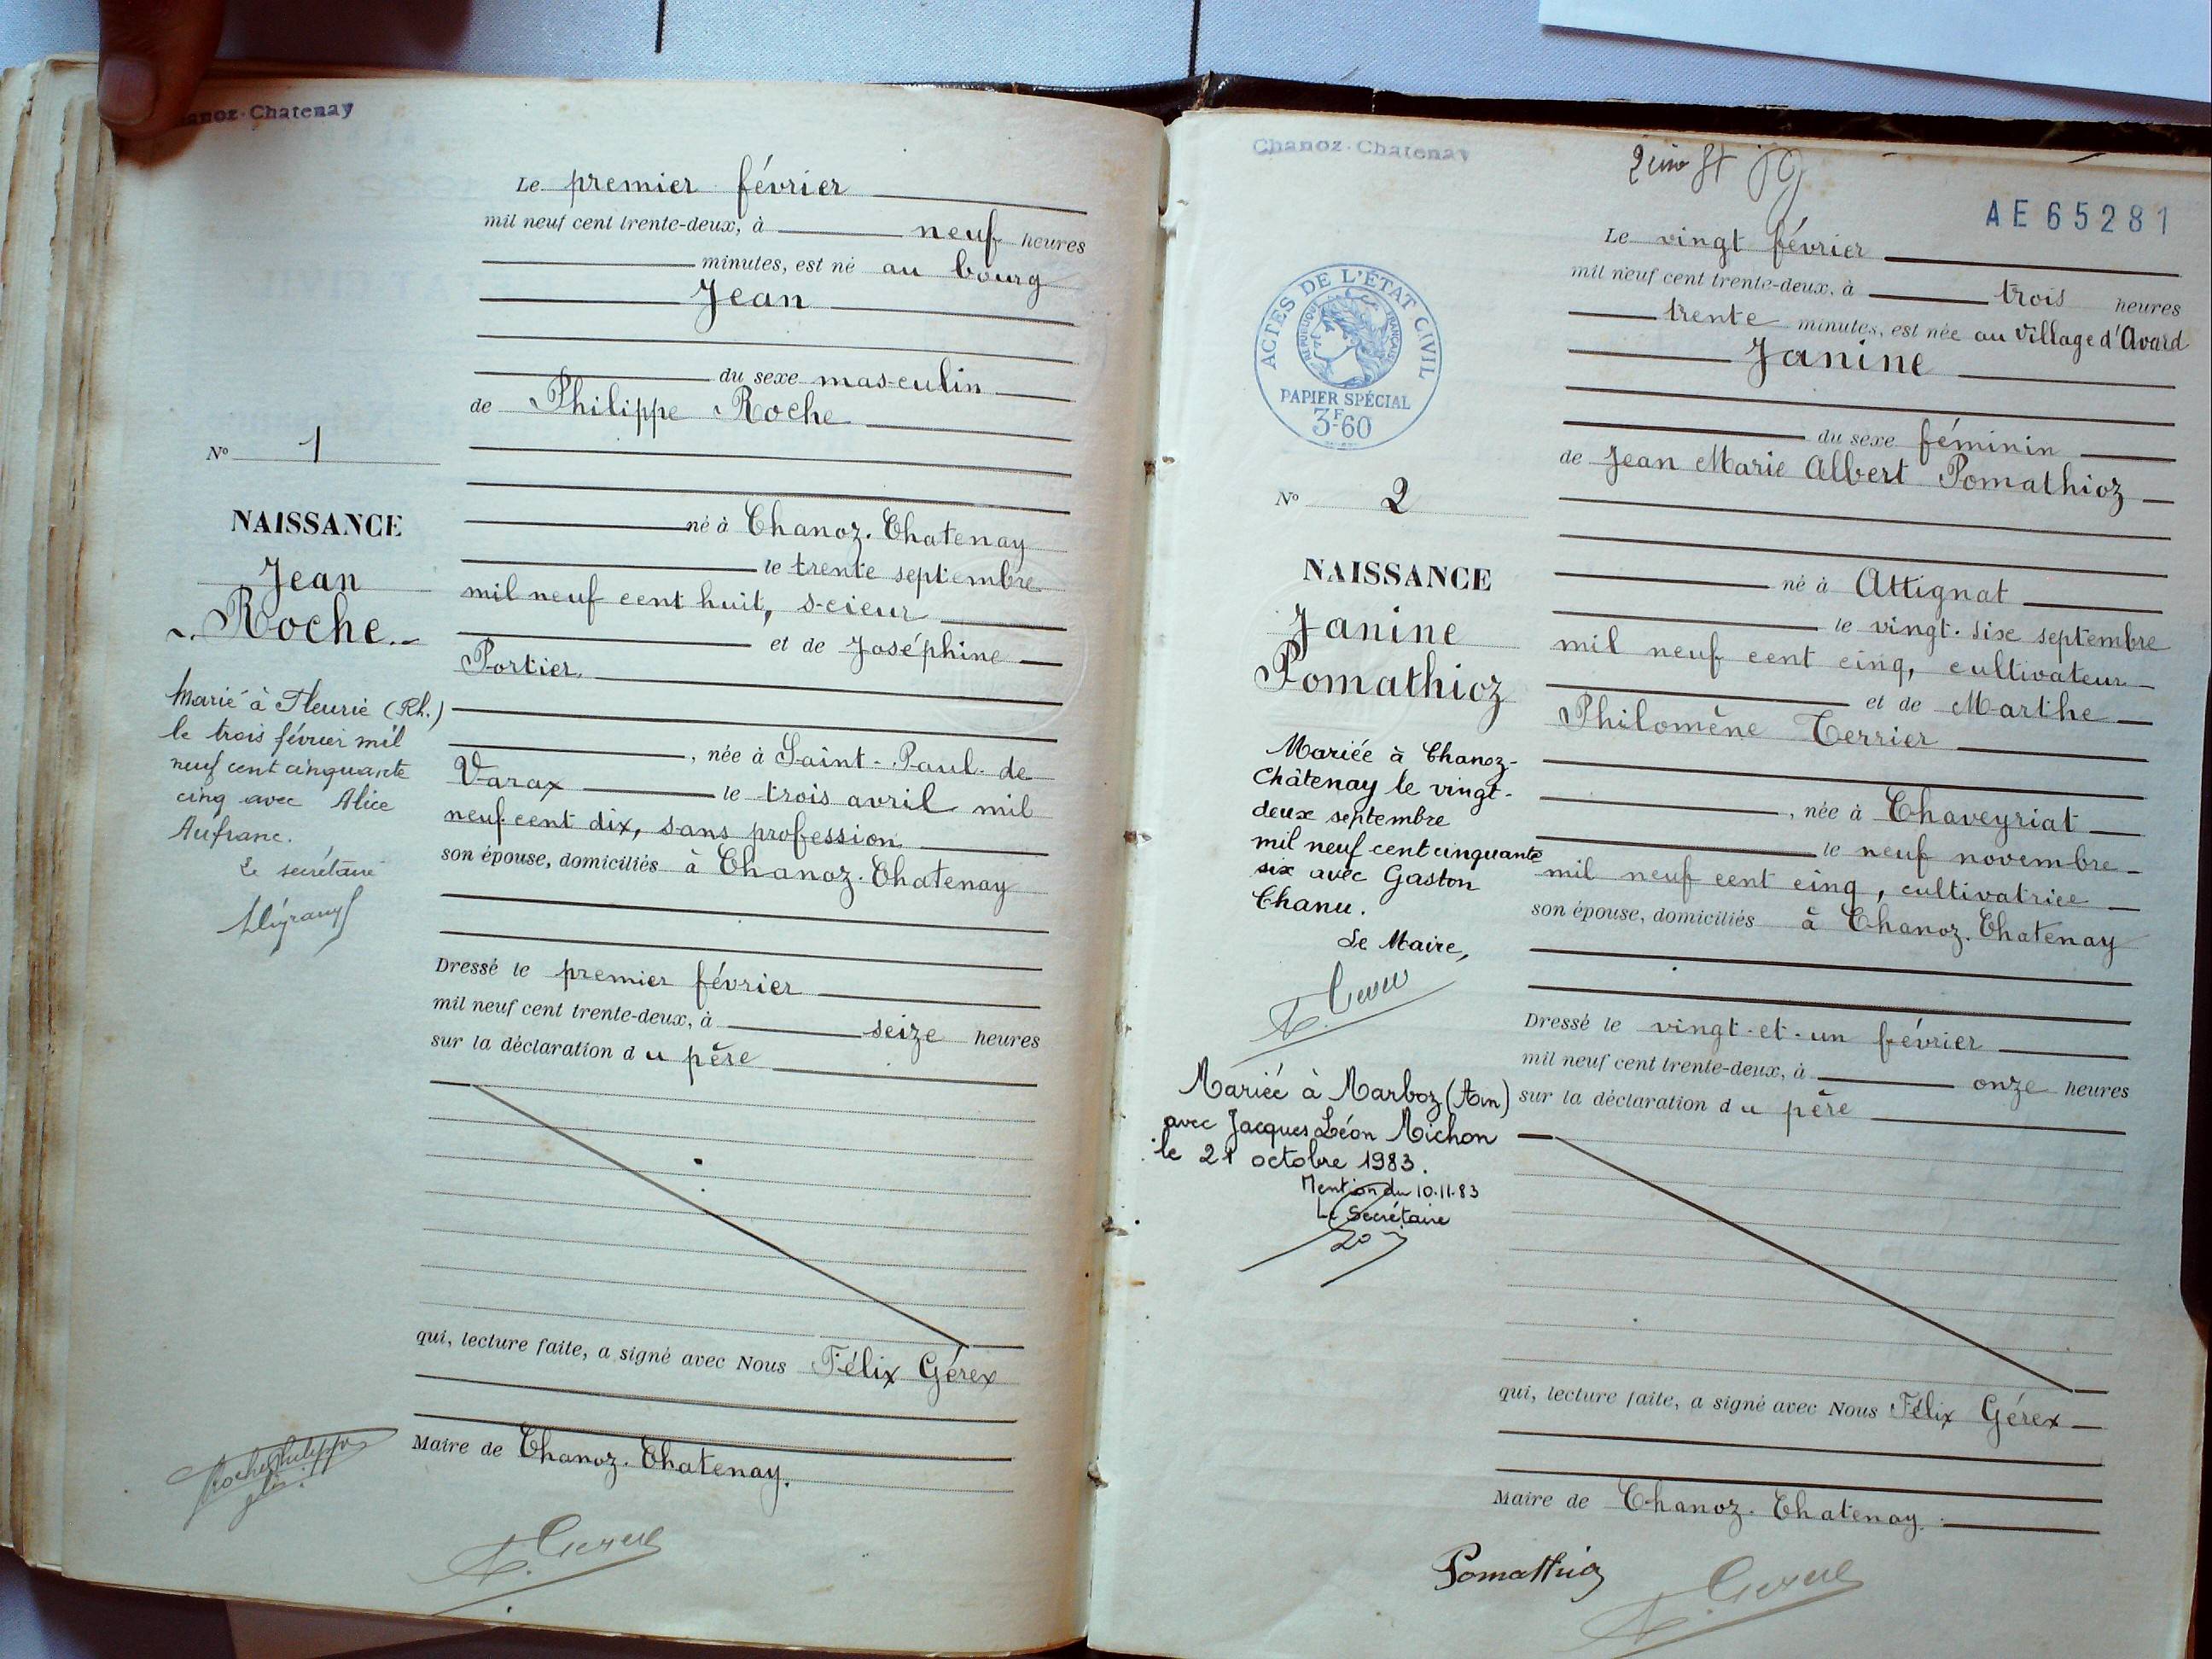 Chanoz-Chatenay
Le premier février
mil neuf cent trente-deux, à neuf heures
minutes, est né au bourg
Jean
du sexe masculin
de Philippe Roche
né à Chanoz-Chatenay
le trente septembre
mil neuf cent huit, scieur
et de Joséphine
Portier
, née à Saint-Paul-de
Varax le trois avril mil
neuf cent dix, sans profession
son épouse, domiciliés à Chanoz-Chatenay
Dressé le premier février
mil neuf cent trente-deux, à seize heures
sur la déclaration du père
qui, lecture faite, a signé avec Nous Félix Gérex
Maire de Chanoz-Chatenay.
N° 1
NAISSANCE
Jean
Roche
Marié à Fleurie (Rh.)
le trois février mil
neuf cent cinquante
cinq avec Alice
Aufranc.
Le secrétaire
Roche Philippe
Chanoz-Chatenay
AE65281
Le vingt février
mil neuf cent trente-deux, à trois heures
trente minutes, est née au village d'Avard
Janine
du sexe féminin
de Jean Marie Albert Pomathioz
né à Attignat
le vingt-six septembre
mil neuf cent cinq, cultivateur
et de Marthe
Philomène Terrier
, née à Chaveyriat
le neuf novembre
mil neuf cent cinq, cultivatrice
son épouse, domiciliés à Chanoz-Chatenay
Dressé le vingt-et-un février
mil neuf cent trente-deux, à onze heures
sur la déclaration du père
qui, lecture faite, a signé avec Nous Félix Gérex
Maire de Chanoz-Chatenay.
ACTES DE L'ÉTAT CIVIL
RÉPUBLIQUE FRANÇAISE
PAPIER SPÉCIAL
3F60
N° 2
NAISSANCE
Janine
Pomathioz
Mariée à Chanoz-
Châtenay le vingt-
deux septembre
mil neuf cent cinquante
six avec Gaston
Chanu.
Le Maire,
Mariée à Marboz (Ain)
avec Jacques Léon Michon
le 21 octobre 1983.
Mention du 10.11.83
Le Secrétaire
Pomathioz